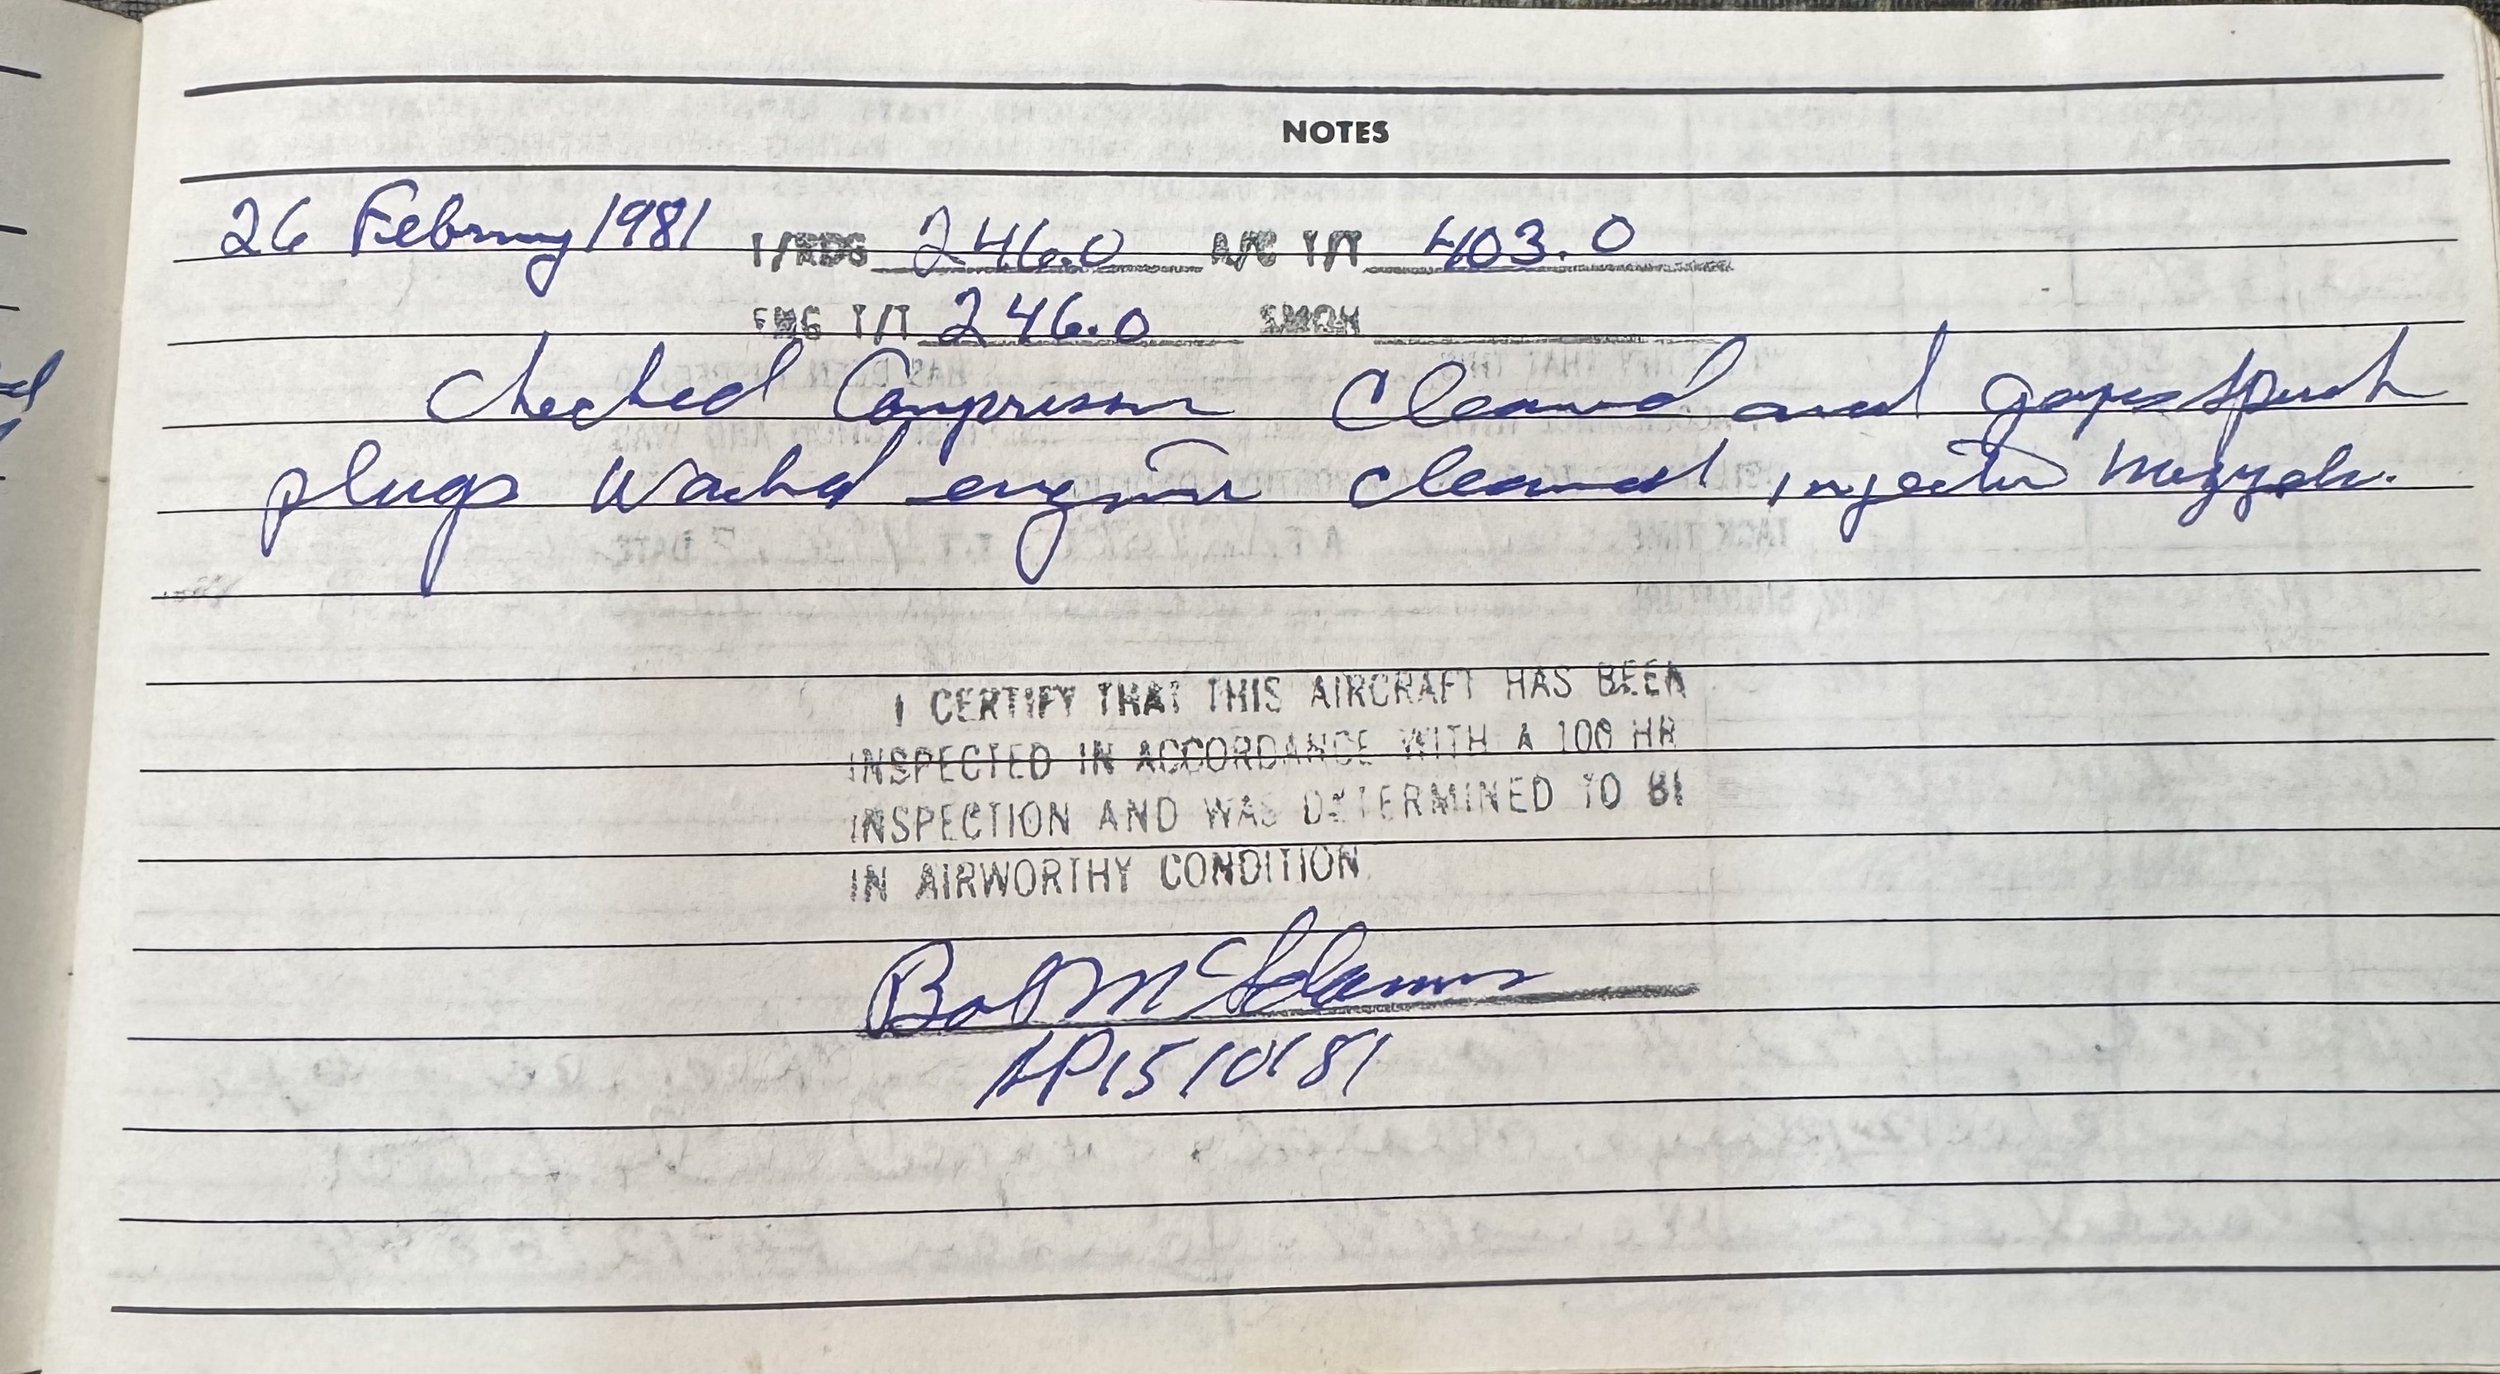 NOTES
26 February 1981 T/RDG 246.0 A/C T/T 403.0
ENG T/T 246.0 SMOH
Checked Compression Cleaned and gapes spark
plugs Washed engine Cleaned injector nozzels.
I CERTIFY THAT THIS AIRCRAFT HAS BEEN
INSPECTED IN ACCORDANCE WITH A 100 HR
INSPECTION AND WAS DETERMINED TO BE
IN AIRWORTHY CONDITION
Bob McAdams